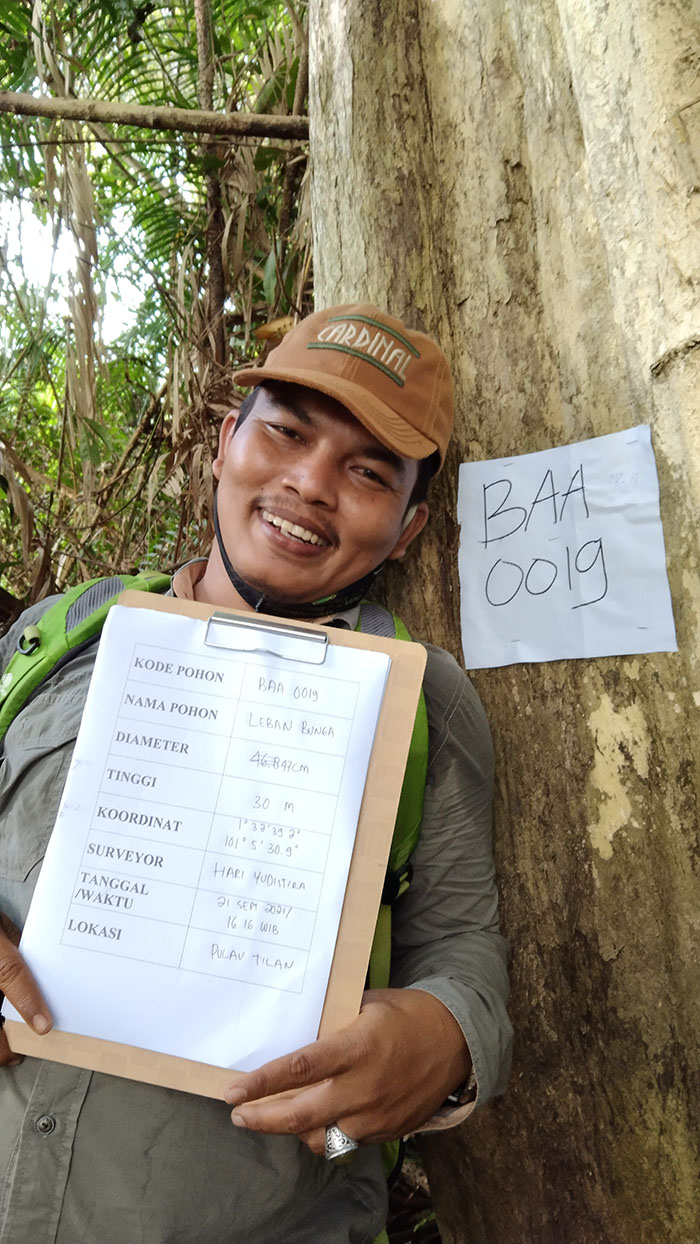 CARDINAL
BAA
0019
KODE POHON BAA 0019
NAMA POHON LEBAN BUNGA
DIAMETER 46,8 47CM
TINGGI 30 M
KOORDINAT 1° 32' 39.2"
101° 5' 30.9"
SURVEYOR HARI YUDISTIRA
TANGGAL 21 SEP 2021/
/WAKTU 16 16 WIB
LOKASI PULAU TILAN